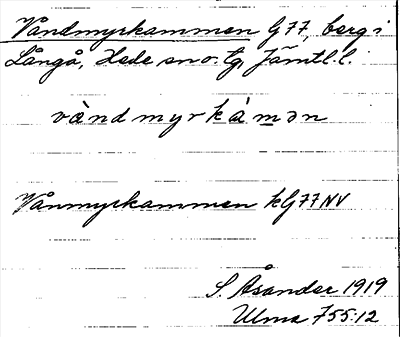 Vandmyrkammen G77, berg i
Långå, Hede sn o. tg, Jämtl. l.
vȧ̀nd myr kȧ́mən
Vånmyrkammen kG77NV
S. Åsander 1919
Ulma 755:12